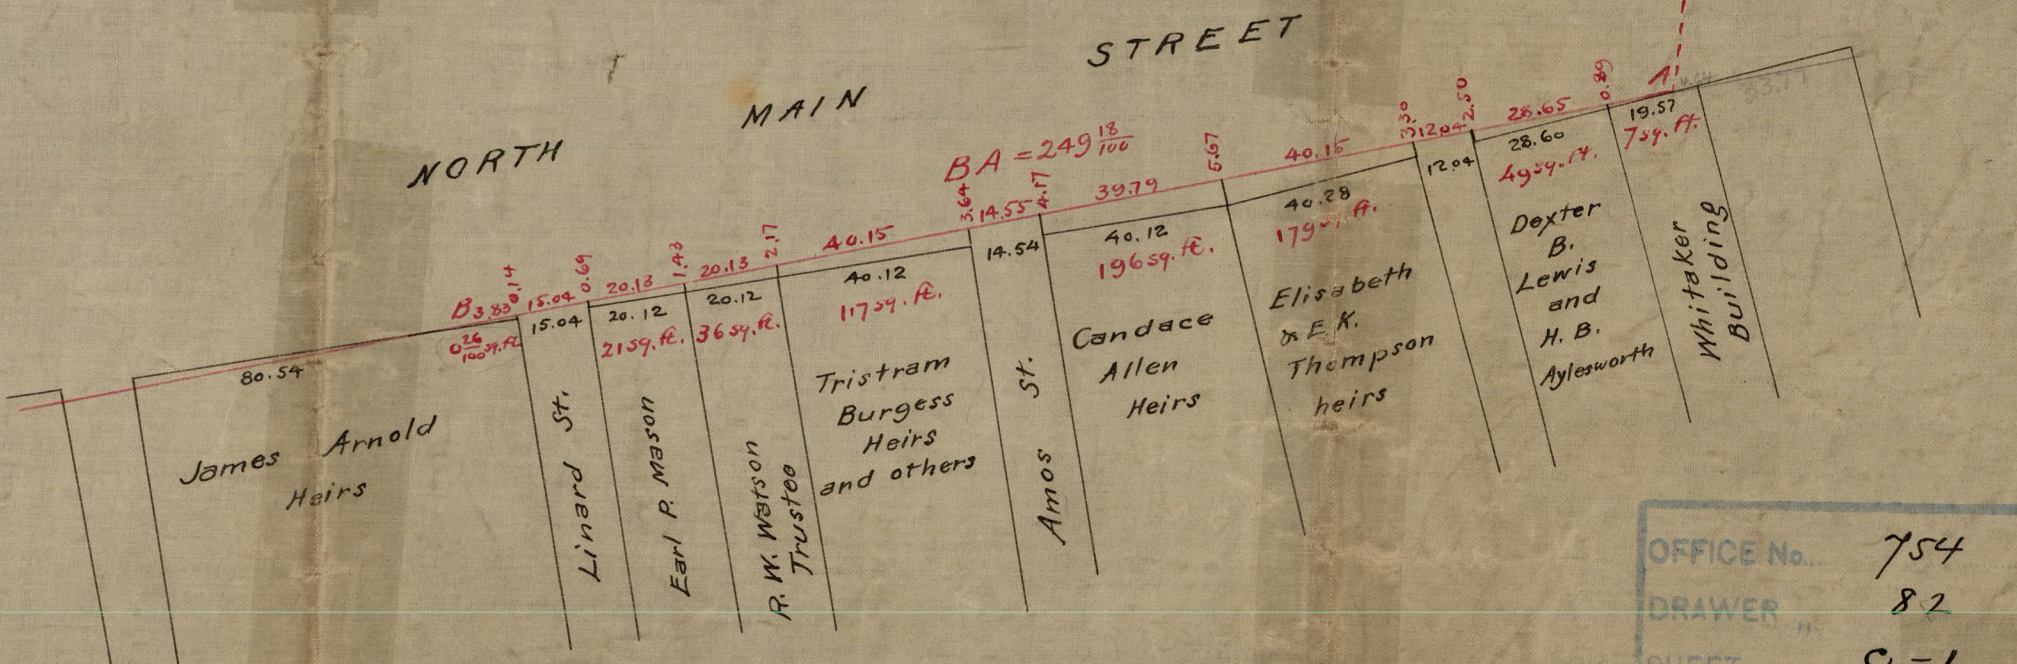 NORTH MAIN STREET
BA = 249 18/100
B 3.83
0.14
15.04
0.69
20.13
1.43
20.13
2.17
40.15
3.64
14.55
4.17
39.79
5.67
40.15
3.30
12.04
2.50
28.65
0.89
A
33.77
80.54
0 26/100 sq. ft.
15.04
20.12
21 sq. ft.
20.12
36 sq. ft.
40.12
117 sq. ft.
14.54
40.12
196 sq. ft.
40.28
179 sq. ft.
12.04
28.60
49 sq. ft.
19.57
7 sq. ft.
James Arnold
Heirs
Linard St.
Earl P. Mason
R. W. Watson
Trustee
Tristram
Burgess
Heirs
and others
Amos St.
Candace
Allen
Heirs
Elisabeth
& E. K.
Thompson
heirs
Dexter
B.
Lewis
and
H. B.
Aylesworth
Whitaker
Building
OFFICE No. 754
DRAWER " 82
SHEET